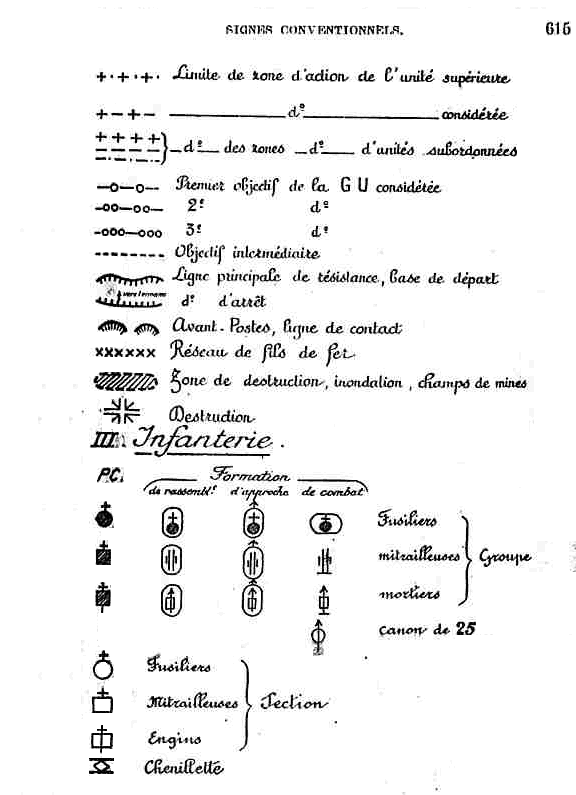 SIGNES CONVENTIONNELS. 615
Limite de zone d'action de l'unité supérieure
dº considérée
dº des zones dº d'unités subordonnées
Premier objectif de la G U considérée
2e dº
3e dº
Objectif intermédiaire
Ligne principale de résistance, base de départ
vers l'ennemi dº d'arrêt
Avant-Postes, ligne de contact
Réseau de fils de fer
Zone de destruction, inondation, champs de mines
Destruction
III. Infanterie.
P.C. Formation
de rassemblt d'approche de combat
Fusiliers
mitrailleuses Groupe
mortiers
canon de 25
Fusiliers
Mitrailleuses Section
Engins
Chenillette